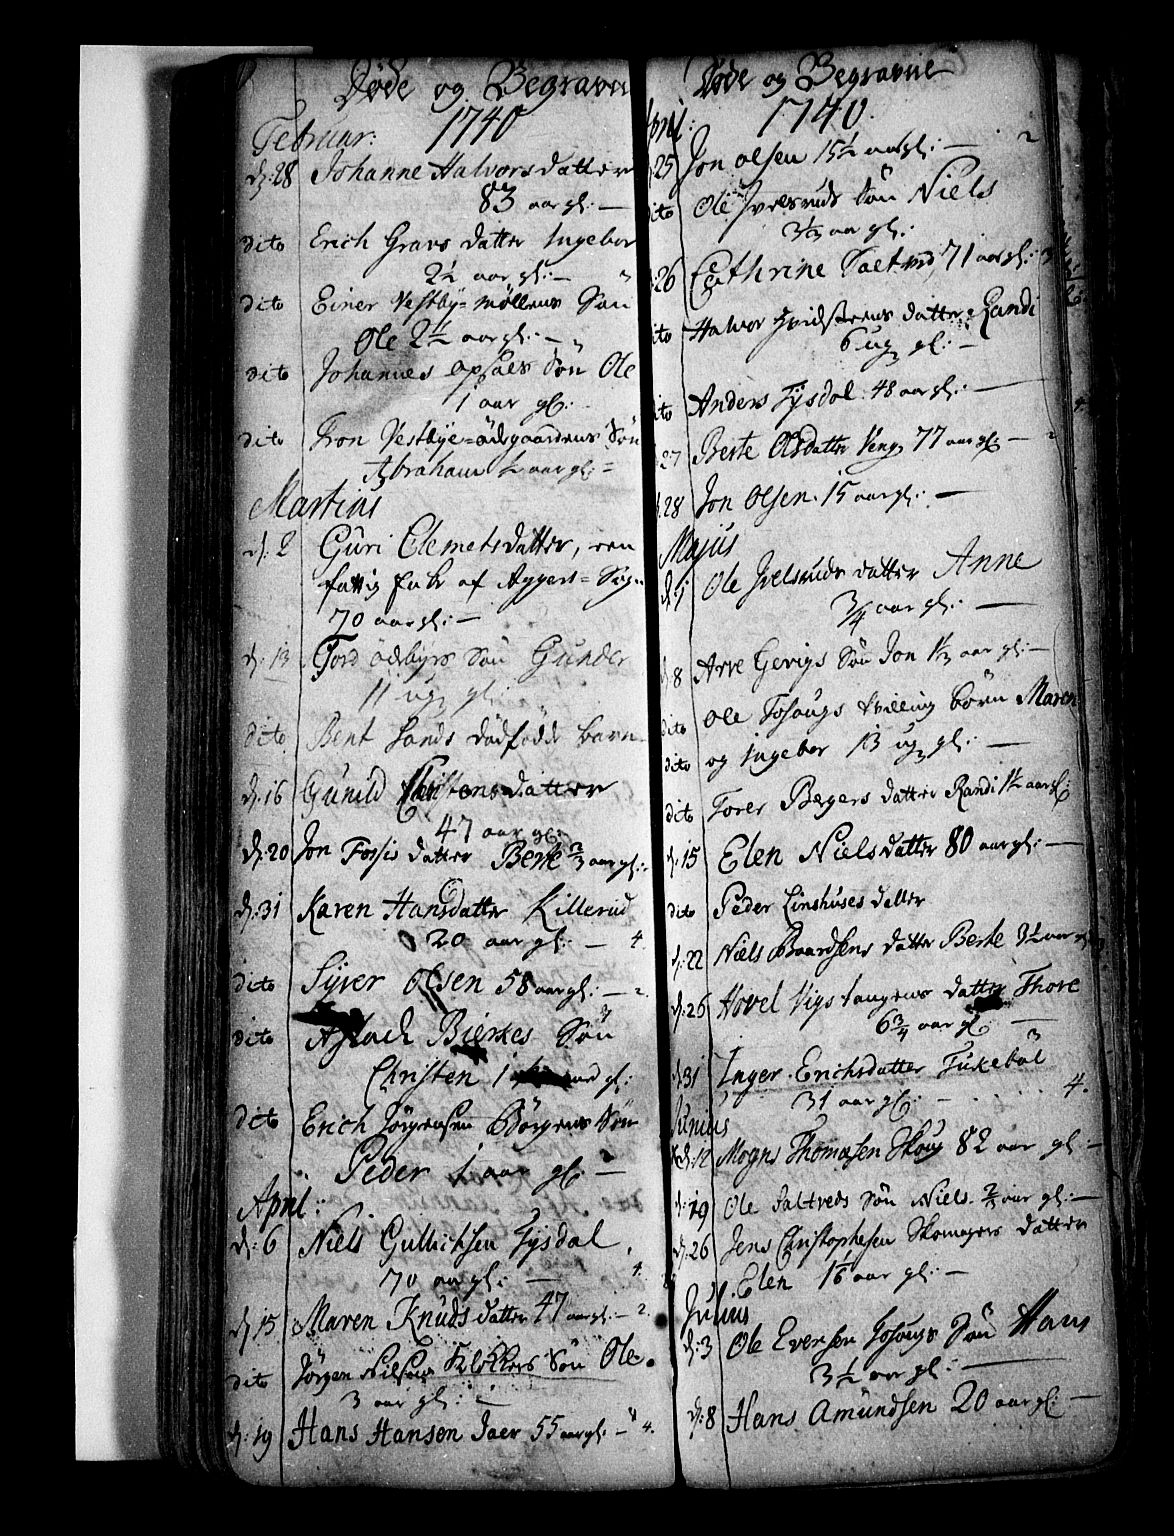 Døde og Begravne
1740
Februar:
d: 28 Johanne Halvorsdatter
83 aar gl: —
dito Erich Gravs datter Ingebor
2½ aar gl: —
dito Einer Vestby=Møllens Søn
Ole 2½ aar gl: —
dito Johannes Opsals Søn Ole
1 aar gl:
dito Tron Vestbye=ødegaardens Søn
Abraham ½ aar gl: =
Martius
d: 2 Guri Clemetsdatter, een
fattig Enke af Aggers=Sogn
70 aar gl: —
d: 13 Tord Odsbyes Søn Gunder
11 ug gl:
dito Bent Sands dødfødde barn
d: 16 Gunild datter
47 aar gl:
d: 20 Jon Fossis datter Berte ⅔ aar gl:
d: 31 Karen Hansdatter Killerud
20 aar gl: — 4.
dito Syver Olsen 58 aar gl: — 2.
dito Aslach Bierkes Søn
Christen 1 gl:
dito Erich Jørgensen Børgens Søn
Peder ½ aar gl: —
April:
d: 6 Niels Gullichsen Tysdal
70 aar gl: — 4.
d: 15 Maren Knudsdatter 47 aar gl: — 2.
dito Jørgen Nilsen Klokkers Søn Ole.
3 aar gl: —
d: 19 Hans Hansen Jaer 55 aar gl: — 4.
Døde og Begravne
1740.
April:
d: 25 Jon Olsen 15½ aar gl: — 2
dito Ole Ivelsruds Søn Niels
3⅓ aar gl:
d: 26 Cathrine Saltved 71 aar gl: 3
dito Halvor Hvidsteens datter Randi
6 ug gl: —
dito Anders Tysdal 48 aar gl: — 4.
d: 27 Berte Olsdatter Veng 77 aar gl: — 2
d: 28 Jon Olsen 15 aar gl: —
Majus
d: 1 Ole Ivelsruds datter Anne
¾ aar gl: —
d: 8 Arve Gevigs Søn Jon 1⅓ aar gl: —
dito Ole Tosougs tvilling børn Maren
dito og Ingebor 13 ug gl: —
dito Torer Bøgers datter Randi 1½ aar gl:
d: 15 Elen Nielsdatter 80 aar gl: —
dito Peder Linshuses datter
d: 22 Niels Baardsens datter Berte 3½ aar gl:
d: 26 Hovel Vigstangens datter Thore
6¾ aar gl: —
d: 31 Inger Erichsdatter Tukebøl
31 aar gl: — . . . . 4.
Junius
d: 12 Mogns Thomæsen Skoug 82 aar gl: —
d: 19 Ole Saltveds Søn Niels ⅔ aar gl: —
d: 26 Jens Christophesen Skomagers datter
Elen 1⅙ aar gl: —
Julius
d: 3 Ole Evensen Tosougs Søn Hans
3½ aar gl: —
d: 8 Hans Amundsen 20 aar gl: —